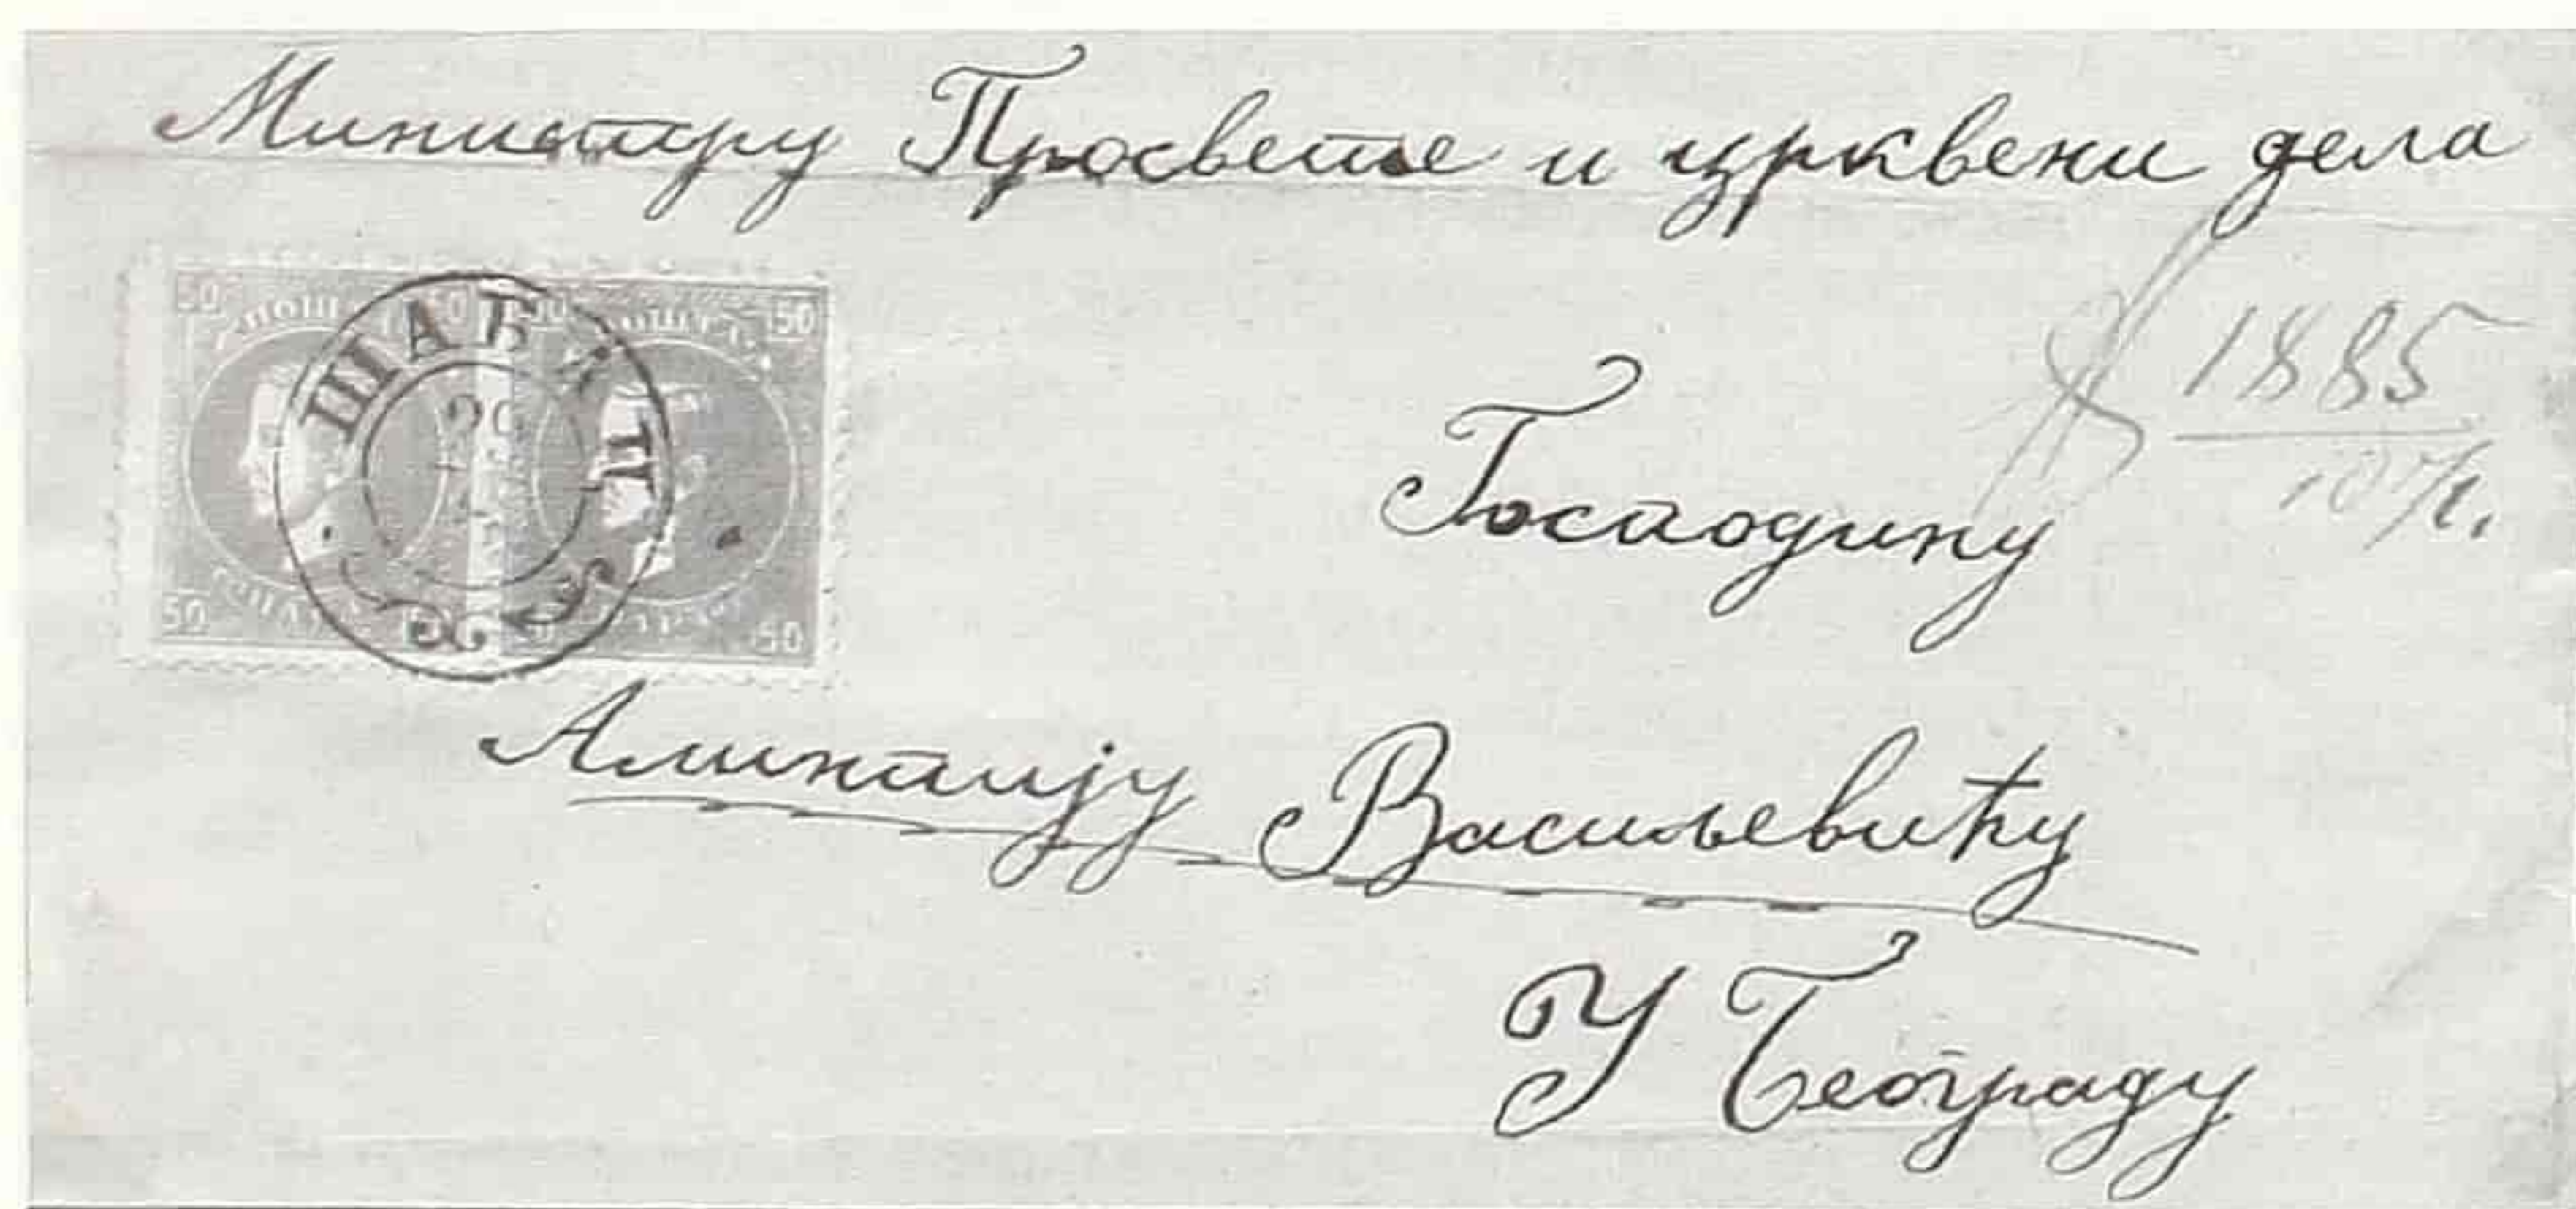 Министру Просвете и црквени дела
50 50 50 50
ШАБАЦ
1885
Господину
50 50
Алимпију Васиљевићу
У Београду